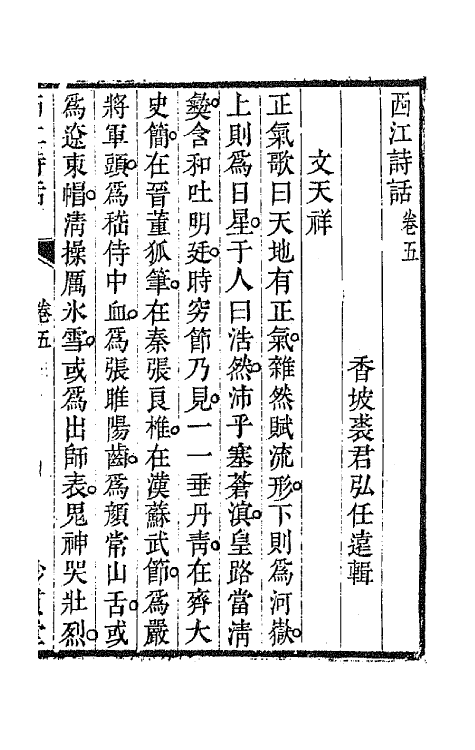 西江詩話卷五
香坡裘君弘任遠輯
文天祥
正氣歌曰天地有正氣。雜然賦流形。下則為河嶽。
上則為日星。于人曰浩然。沛乎塞蒼溟。皇路當清
彝。含和吐明廷。時窮節乃見。一一垂丹青。在齊大
史簡。在晉董狐筆。在秦張良椎。在漢蘇武節。為嚴
將軍頭。為嵇侍中血。為張睢陽齒。為顏常山舌。或
為遼東帽。清操厲氷雪。或為出師表。鬼神哭壯烈。
西江詩話 卷五